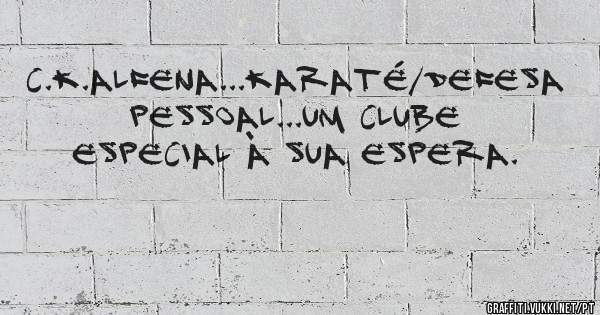 C.K.ALFENA...KARATÉ/DEFESA
PESSOAL...UM CLUBE
ESPECIAL À SUA ESPERA.
GRAFFITI.VUKKI.NET/PT